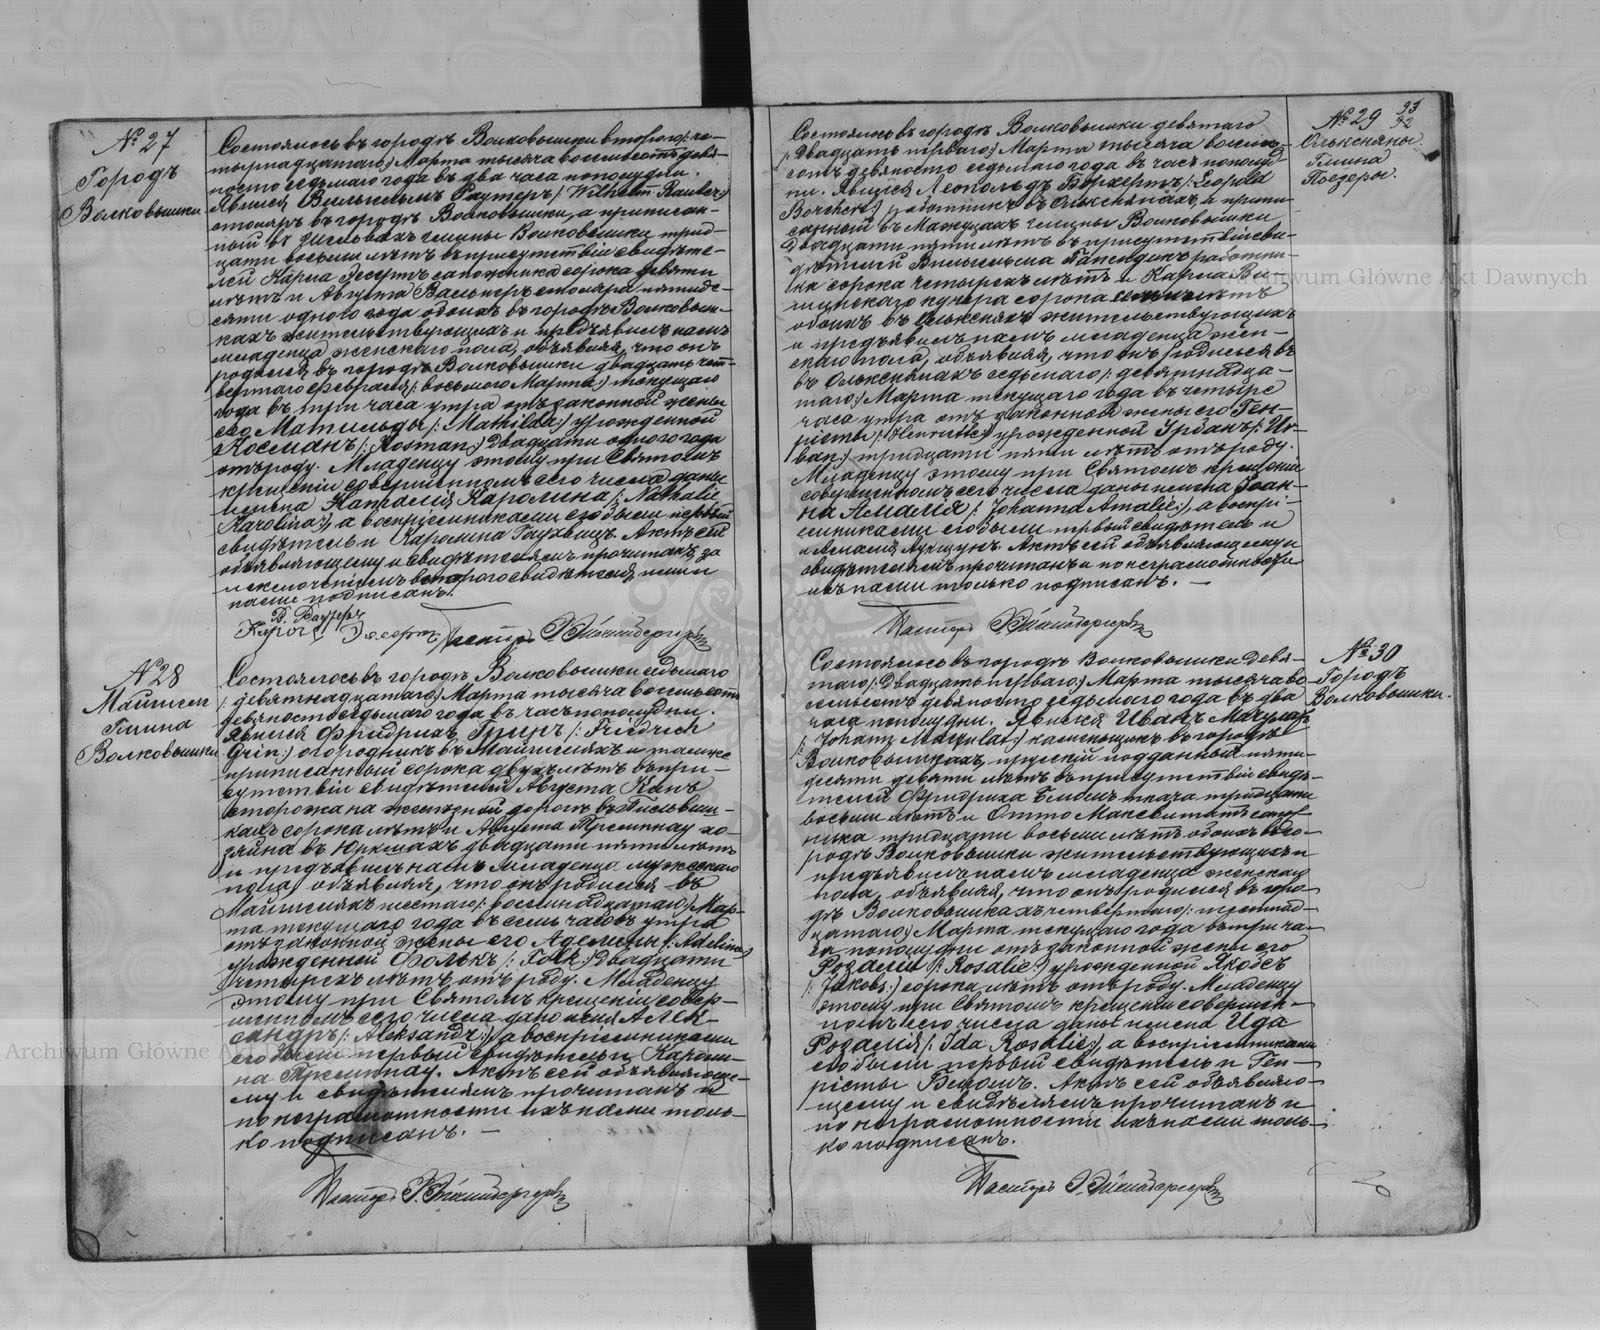 № 27
Городъ
Волковышки
Состоялось въ городѣ Волковышки второго /: че-
тырнадцатаго :/ Марта тысяча восемьсотъ девя-
носто седьмаго года въ два часа пополудни.
Явился Вильгельмъ Раутеръ /: Wilhelm Rauter :/
столяръ въ городѣ Волковышки, а приписан-
ный въ гминѣ Волковышки, трид-
цати восьми лѣтъ въ присутствіи свидѣте-
лей Карла Эссертъ сапожника сорока девяти
лѣтъ и Августа Вальнеръ столяра пятьде-
сяти одного года обоихъ въ городѣ Волковыш-
кахъ жительствующихъ и предъявилъ намъ
младенца женскаго пола, объявляя, что онъ
родился въ городѣ Волковышки двадцать чет-
вертаго Февраля /: восьмого Марта :/ текущаго
года въ три часа утра отъ законной жены
его Матильды /: Mathilde :/ урожденной
Косманъ /: Kosman :/ двадцати одного года
отъ роду. Младенцу этому при Святомъ
крещеніи совершенномъ сего числа даны
имена Наталія Каролина /: Nathalie
Karolina :/, а воспріемниками его были первый
свидѣтель и Каролина. Актъ сей
объявляющему и свидѣтелямъ прочитанъ, за
исключеніемъ второго свидѣтеля, ими и
нами подписанъ.
В. Раутеръ
Пасторъ
№ 28
Майшели
Гмина
Волковышки
Состоялось въ городѣ Волковышки седьмаго
/: девятнадцатаго :/ Марта тысяча восемьсотъ
девяносто седьмаго года въ часъ пополудни.
Явился Фридрихъ Гринъ /: Friedrich
Grin :/ огородникъ въ Майшеляхъ и также
приписанный сорока двухъ лѣтъ въ при-
сутствіи свидѣтелей Августа Канъ
сторожа на желѣзной дорогѣ въ Пильвиш-
кахъ сорока лѣтъ и Августа Премпнау хо-
зяина въ Юркшахъ двадцати пяти лѣтъ
и предъявилъ намъ младенца мужескаго
пола, объявляя, что онъ родился въ
Майшеляхъ шестаго /: восемнадцатаго :/ Мар-
та текущаго года въ семь часовъ утра
отъ законной жены его Аделины /: Adelina :/
урожденной Фолькъ /: Folk :/ двадцати
четырехъ лѣтъ отъ роду. Младенцу
этому при Святомъ крещеніи совер-
шенномъ сего числа дано имя Алек-
сандръ /: Aleksandr :/, а воспріемниками
его были первый свидѣтель и Кароли-
на Премпнау. Актъ сей объявляюще-
му и свидѣтелямъ прочитанъ и
по неграмотности ихъ нами толь-
ко подписанъ. —
Пасторъ
Состоялось въ городѣ Волковышки девятаго
/: двадцать перваго :/ Марта тысяча восемь-
сотъ девяносто седьмаго года въ часъ пополуд-
ни. Явился Леопольдъ Борхертъ /: Leopold
Borchert :/ работникъ въ Олькснянахъ, а припи-
санный въ гмины Волковышки
двадцати пяти лѣтъ въ присутствіи сви-
дѣтелей Вильгельма работни-
ка сорока четырехъ лѣтъ и Карла Ви-
кучера сорока лѣтъ
обоихъ въ Олькснянахъ жительствующихъ
и предъявилъ намъ младенца жен-
скаго пола, объявляя, что онъ родился въ
въ Олькснянахъ седьмаго /: девятнадца-
таго :/ Марта текущаго года въ четыре
часа утра отъ законной жены его Ген-
ріеты /: Henriette :/ урожденной Урбанъ /: Ur-
ban :/ тридцати пяти лѣтъ отъ роду.
Младенцу этому при Святомъ крещеніи
совершенномъ сего числа даны имена Іоан-
на Амалія /: Johanna Amalie :/, а воспрі-
емниками его были первый свидѣтель и
Амалія. Актъ сей объявляющему и
свидѣтелямъ прочитанъ и по неграмотности
ихъ нами только подписанъ. —
Пасторъ
№ 29
Олькcняны
Гмина
Поедеры.
93
92
Состоялось въ городѣ Волковышки девя-
таго /: двадцать перваго :/ Марта тысяча во-
семьсотъ девяносто седьмаго года въ два
часа пополудни. Явился Иванъ Матулатъ
/: Johann Matulat :/ каменьщикъ въ городѣ
Волковышкахъ, прусскій подданный пяти-
десяти девяти лѣтъ въ присутствіи свидѣ-
телей Фридриха ткача тридцати
восьми лѣтъ и Отто
тридцати восьми лѣтъ обоихъ въ го-
родѣ Волковышки жительствующихъ и
предъявилъ намъ младенца женскаго
пола, объявляя, что онъ родился въ горо-
дѣ Волковышкахъ четвертаго /: шестнад-
цатаго :/ Марта текущаго года въ три ча-
са пополудни отъ законной жены его
Розаліи /: Rosalie :/ урожденной Якобсъ
/: Jakobs :/ сорока лѣтъ отъ роду. Младенцу
этому при Святомъ крещеніи совершен-
номъ сего числа даны имена Ида
Розалія /: Ida Rosalie :/, а воспріемниками
его были первый свидѣтель и Ген-
ріеты. Актъ сей объявляю-
щему и свидѣтелямъ прочитанъ и
по неграмотности ихъ нами толь-
ко подписанъ.
Пасторъ
№ 30
Городъ
Волковышки.
Archiwum Główne Akt Dawnych
Archiwum Główne